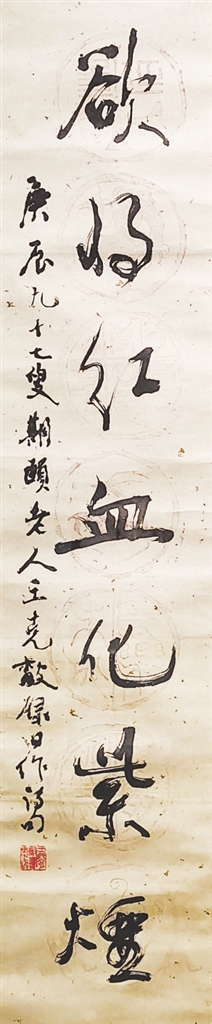 欲将红血化紫煙
庚辰九十七叟期頤老人王録旧作诗句